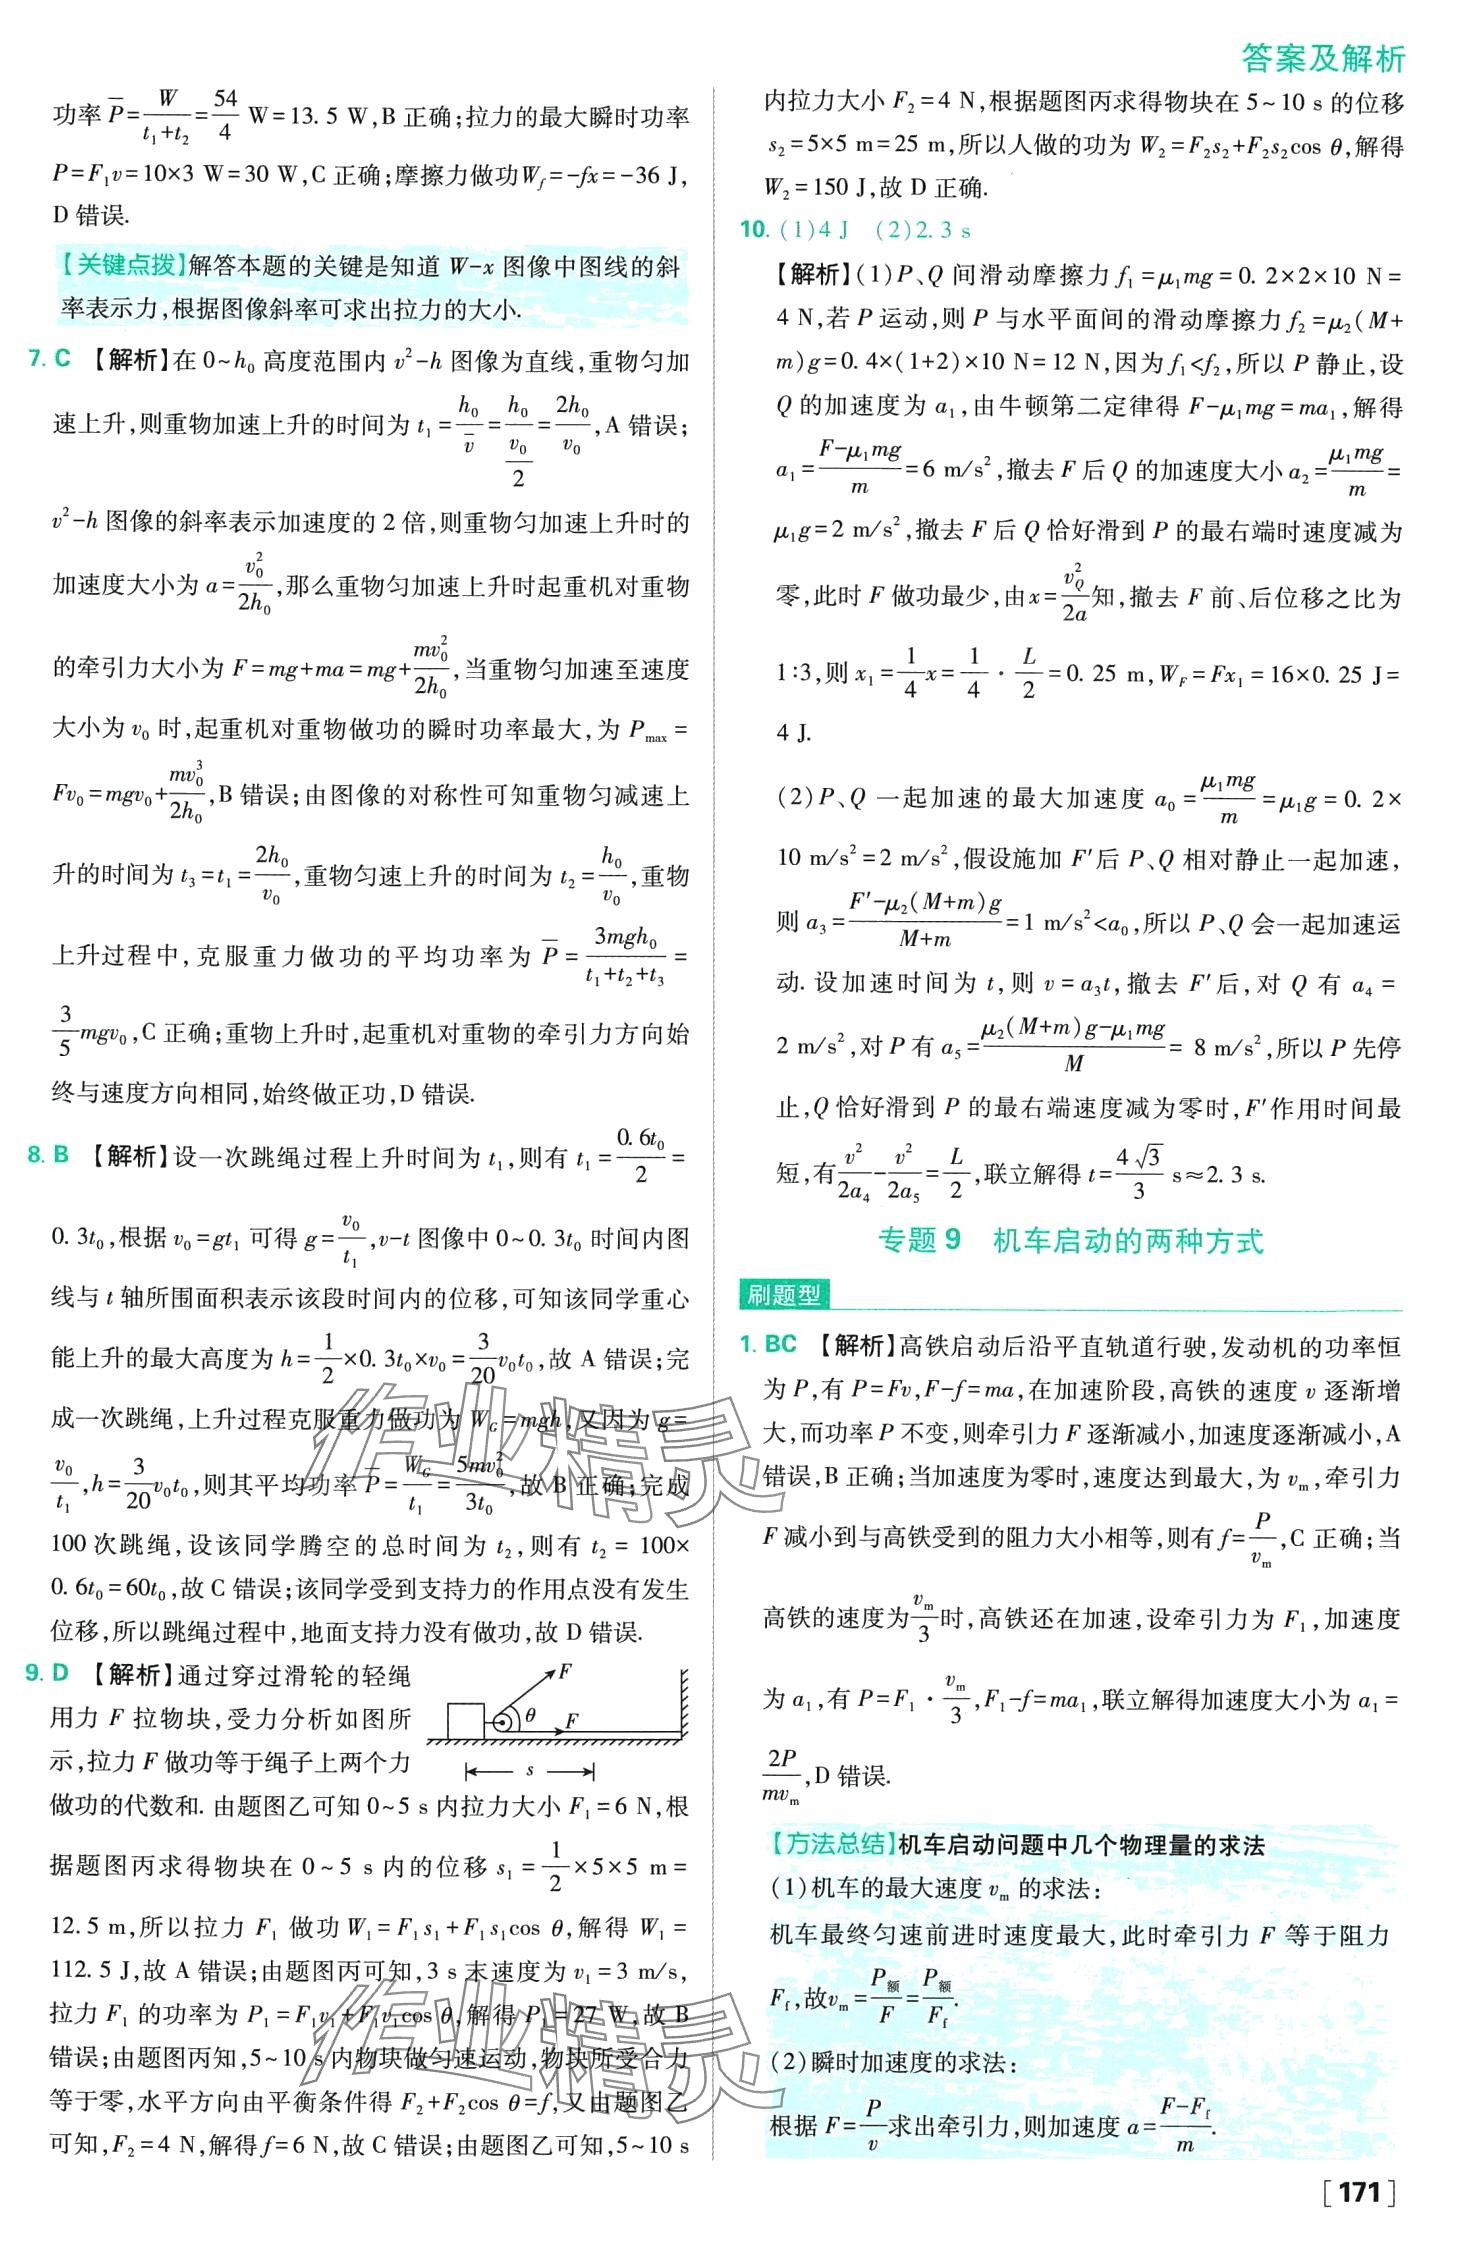 答案及解析
功率 P̄=W/(t₁+t₂)=54/4 W=13.5 W,B 正确;拉力的最大瞬时功率
P=F₁v=10×3 W=30 W,C 正确;摩擦力做功W_f=-fx=-36 J,
D 错误.
【关键点拨】解答本题的关键是知道 W-x 图像中图线的斜
率表示力,根据图像斜率可求出拉力的大小.
7. C 【解析】在 0~h₀ 高度范围内 v²-h 图像为直线,重物匀加
速上升,则重物加速上升的时间为 t₁=h₀/v̄=h₀/(v₀/2)=2h₀/v₀,A 错误;
v²-h 图像的斜率表示加速度的 2 倍,则重物匀加速上升时的
加速度大小为 a=v₀²/2h₀,那么重物匀加速上升时起重机对重物
的牵引力大小为 F=mg+ma=mg+mv₀²/2h₀,当重物匀加速至速度
大小为 v₀ 时,起重机对重物做功的瞬时功率最大,为 P_max=
Fv₀=mgv₀+mv₀³/2h₀,B 错误;由图像的对称性可知重物匀减速上
升的时间为 t₃=t₁=2h₀/v₀,重物匀速上升的时间为 t₂=h₀/v₀,重物
上升过程中,克服重力做功的平均功率为 P̄=3mgh₀/(t₁+t₂+t₃)=
3/5 mgv₀,C 正确;重物上升时,起重机对重物的牵引力方向始
终与速度方向相同,始终做正功,D 错误.
8. B 【解析】设一次跳绳过程上升时间为 t₁,则有 t₁=0.6t₀/2=
0.3t₀,根据 v₀=gt₁ 可得 g=v₀/t₁,v-t 图像中 0~0.3t₀ 时间内图
线与 t 轴所围面积表示该段时间内的位移,可知该同学重心
能上升的最大高度为 h=1/2×0.3t₀×v₀=3/20 v₀t₀,故 A 错误;完
成一次跳绳,上升过程克服重力做功为 W_G=mgh,又因为 g=
v₀/t₁,h=3/20 v₀t₀,则其平均功率 P̄=W_G/t₁=5mv₀²/3t₀,故 B 正确;完成
100 次跳绳,设该同学腾空的总时间为 t₂,则有 t₂=100×
0.6t₀=60t₀,故 C 错误;该同学受到支持力的作用点没有发生
位移,所以跳绳过程中,地面支持力没有做功,故 D 错误.
9. D 【解析】通过穿过滑轮的轻绳
用力 F 拉物块,受力分析如图所
示,拉力 F 做功等于绳子上两个力
F
θ
F
s
做功的代数和. 由题图乙可知 0~5 s 内拉力大小 F₁=6 N,根
据题图丙求得物块在 0~5 s 内的位移 s₁=1/2×5×5 m=
12.5 m,所以拉力 F₁ 做功 W₁=F₁s₁+F₁s₁cos θ,解得 W₁=
112.5 J,故 A 错误;由题图丙可知,3 s 末速度为 v₁=3 m/s,
拉力 F₁ 的功率为 P₁=F₁v₁+F₁v₁cos θ,解得 P₁=27 W,故 B
错误;由题图丙知,5~10 s 内物块做匀速运动,物块所受合力
等于零,水平方向由平衡条件得 F₂+F₂cos θ=f,又由题图乙
可知,F₂=4 N,解得 f=6 N,故 C 错误;由题图乙可知,5~10 s
内拉力大小 F₂=4 N,根据题图丙求得物块在 5~10 s 的位移
s₂=5×5 m=25 m,所以人做的功为 W₂=F₂s₂+F₂s₂cos θ,解得
W₂=150 J,故 D 正确.
10. (1)4 J (2)2.3 s
【解析】(1)P、Q 间滑动摩擦力 f₁=μ₁mg=0.2×2×10 N=
4 N,若 P 运动,则 P 与水平面间的滑动摩擦力 f₂=μ₂(M+
m)g=0.4×(1+2)×10 N=12 N,因为 f₁<f₂,所以 P 静止,设
Q 的加速度为 a₁,由牛顿第二定律得 F-μ₁mg=ma₁,解得
a₁=(F-μ₁mg)/m=6 m/s²,撤去 F 后 Q 的加速度大小 a₂=μ₁mg/m=
μ₁g=2 m/s²,撤去 F 后 Q 恰好滑到 P 的最右端时速度减为
零,此时 F 做功最少,由x=v_Q²/2a知,撤去 F 前、后位移之比为
1∶3,则 x₁=1/4 x=1/4·L/2=0.25 m,W_F=Fx₁=16×0.25 J=
4 J.
(2)P、Q 一起加速的最大加速度 a₀=μ₁mg/m=μ₁g=0.2×
10 m/s²=2 m/s²,假设施加 F′后 P、Q 相对静止一起加速,
则 a₃=(F′-μ₂(M+m)g)/(M+m)=1 m/s²<a₀,所以 P、Q 会一起加速运
动. 设加速时间为 t,则 v=a₃t,撤去 F′后,对 Q 有 a₄=
2 m/s²,对 P 有 a₅=(μ₂(M+m)g-μ₁mg)/M=8 m/s²,所以 P 先停
止,Q 恰好滑到 P 的最右端速度减为零时,F′作用时间最
短,有v²/2a₄-v²/2a₅=L/2,联立解得 t=4√3/3 s≈2.3 s.
专题 9 机车启动的两种方式
刷题型
1. BC 【解析】高铁启动后沿平直轨道行驶,发动机的功率恒
为 P,有 P=Fv,F-f=ma,在加速阶段,高铁的速度 v 逐渐增
大,而功率 P 不变,则牵引力 F 逐渐减小,加速度逐渐减小,A
错误,B 正确;当加速度为零时,速度达到最大,为 v_m,牵引力
F 减小到与高铁受到的阻力大小相等,则有 f=P/v_m,C 正确;当
高铁的速度为v_m/3时,高铁还在加速,设牵引力为 F₁,加速度
为 a₁,有 P=F₁·v_m/3,F₁-f=ma₁,联立解得加速度大小为 a₁=
2P/mv_m,D 错误.
【方法总结】机车启动问题中几个物理量的求法
(1)机车的最大速度 v_m 的求法:
机车最终匀速前进时速度最大,此时牵引力 F 等于阻力
F_f,故v_m=P额/F=P额/F_f.
(2)瞬时加速度的求法:
根据 F=P/v求出牵引力,则加速度 a=(F-F_f)/m.
[171]
作业精灵
作业精灵